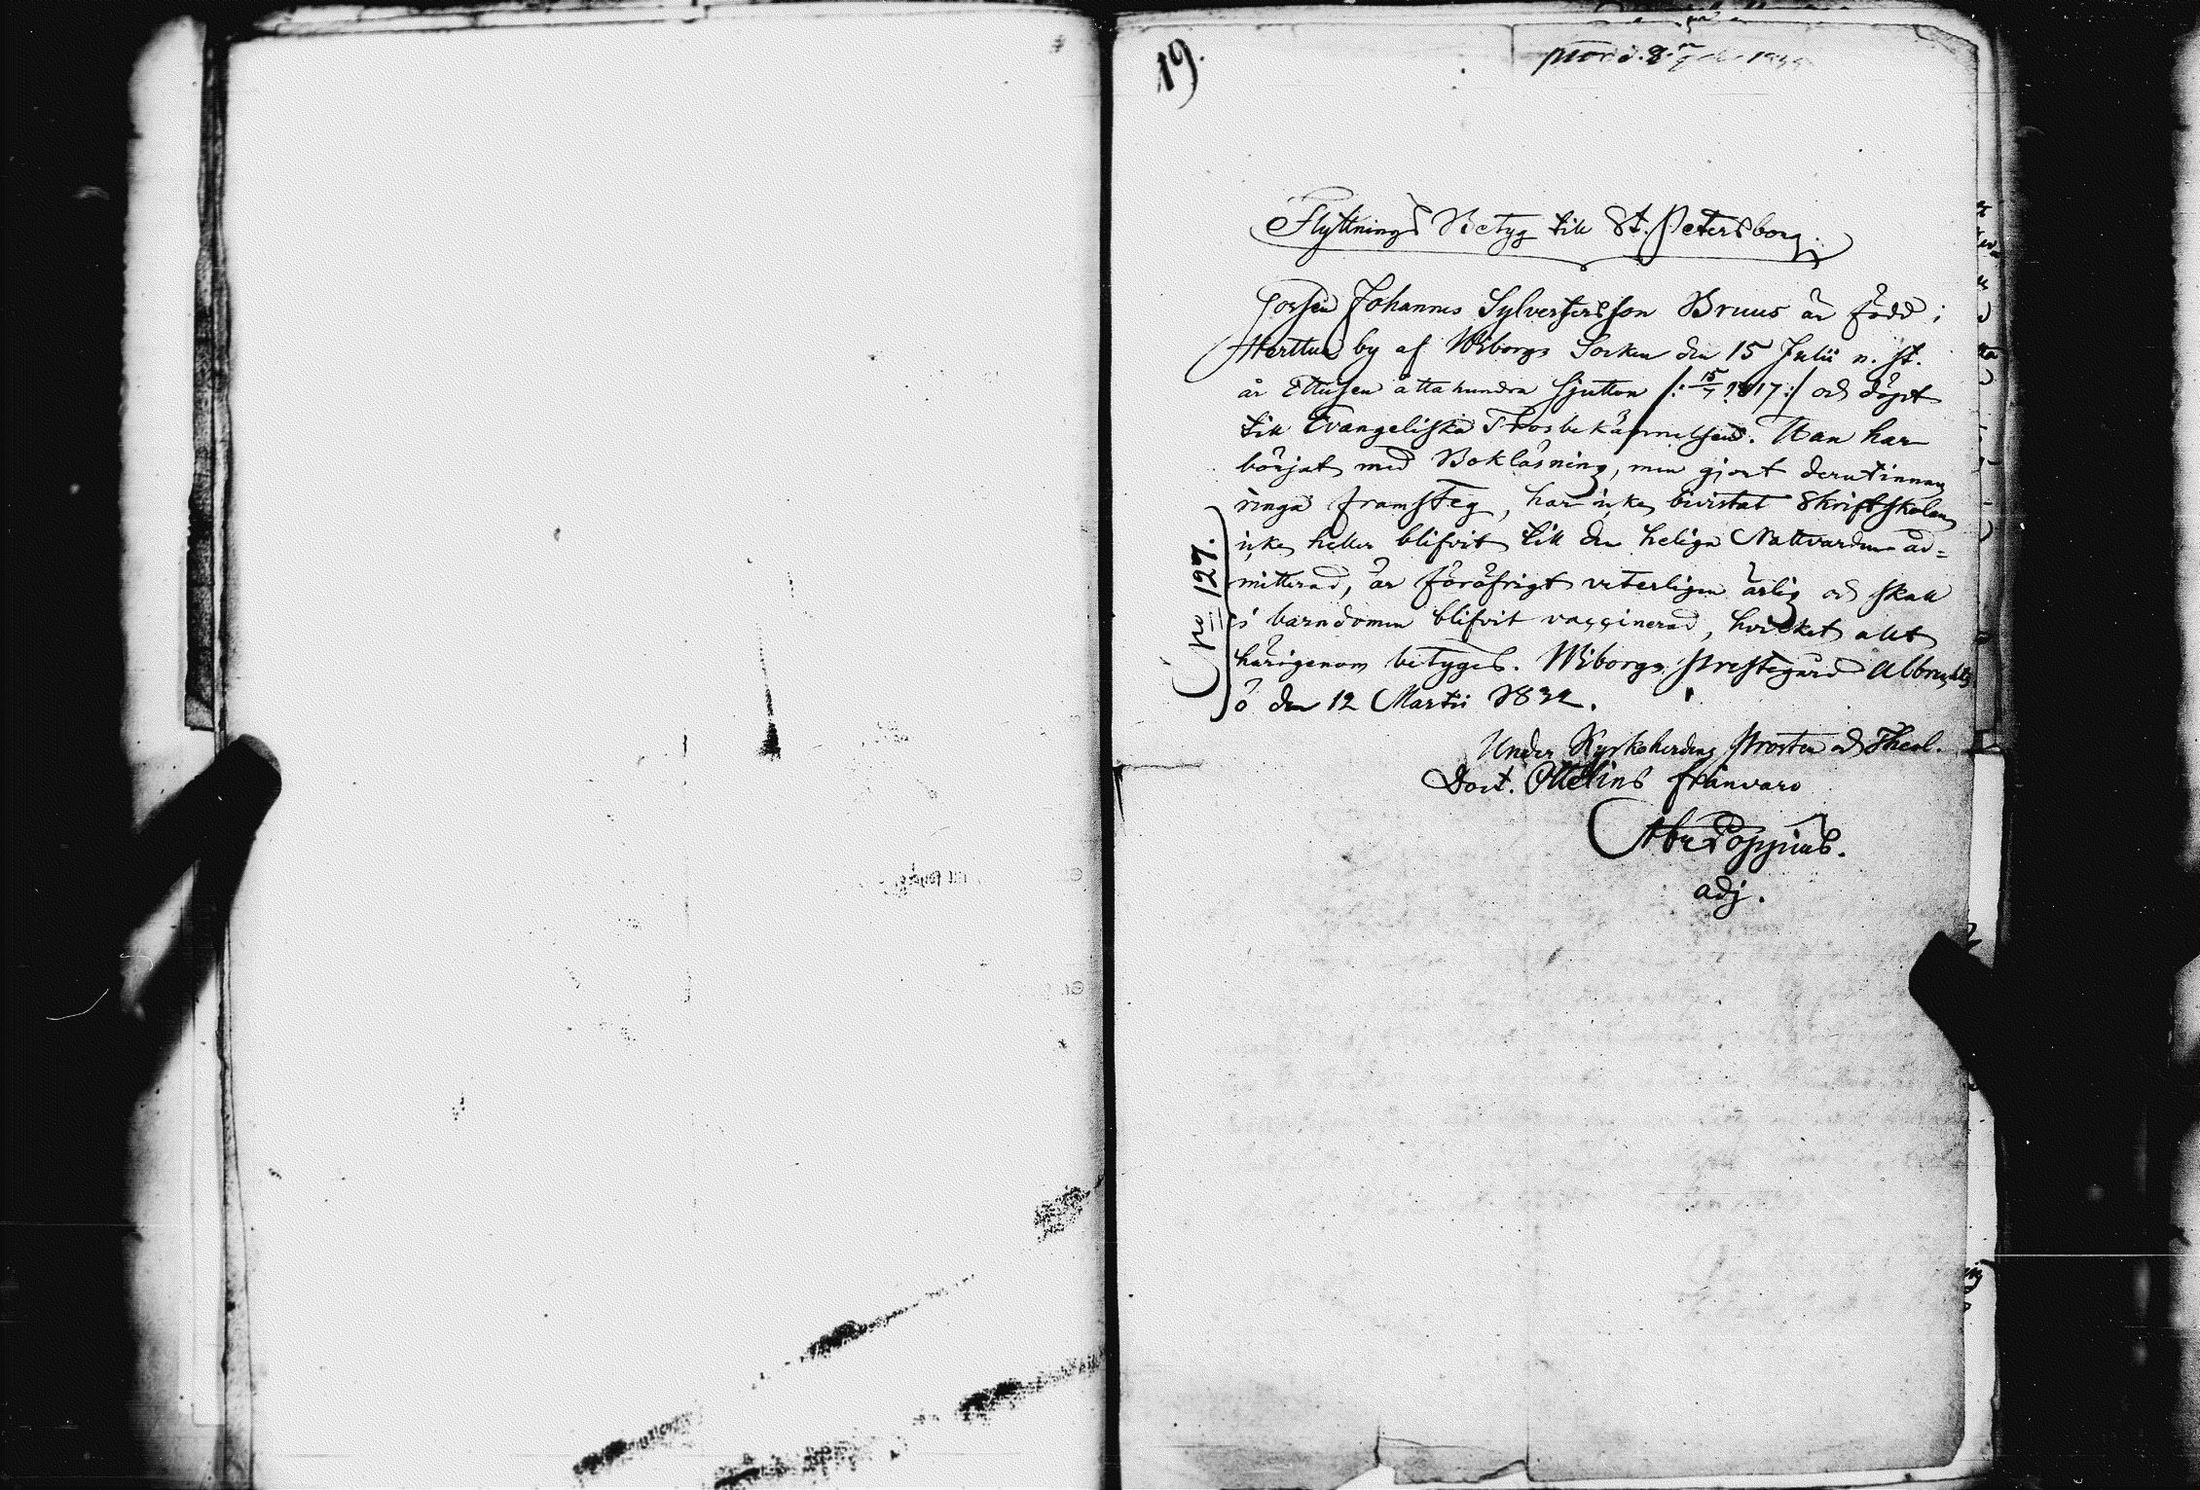 19.
Flyttnings Betyg till St. Petersborg.
Gossen Johannes Sylvestersson Bruus är född i
Herttua by af Wiborgs Socken den 15 Julii n. st.
år Ettusen åttahundra sjutton /: 15/7 1817 :/ och döpt
till Evangeliska Trosbekännelsen. Han har
börjat med Bokläsning, men gjort derutinnan
ringa framsteg, har icke bivistat Skriftskolan,
icke heller blifvit till den heliga Nattvarden ad-
mitterad, är föröfrigt veterligen ärlig och skall
i barndomen blifvit vaccinerad, hvilket allt
härigenom betygas. Wiborgs Prestegård Albrechts
ö den 12 Martii 1832.
No 127.
Under Kyrkoherden, Prosten och Theol.
Doct. Ottelins frånvaro
Abr Poppius.
adj.